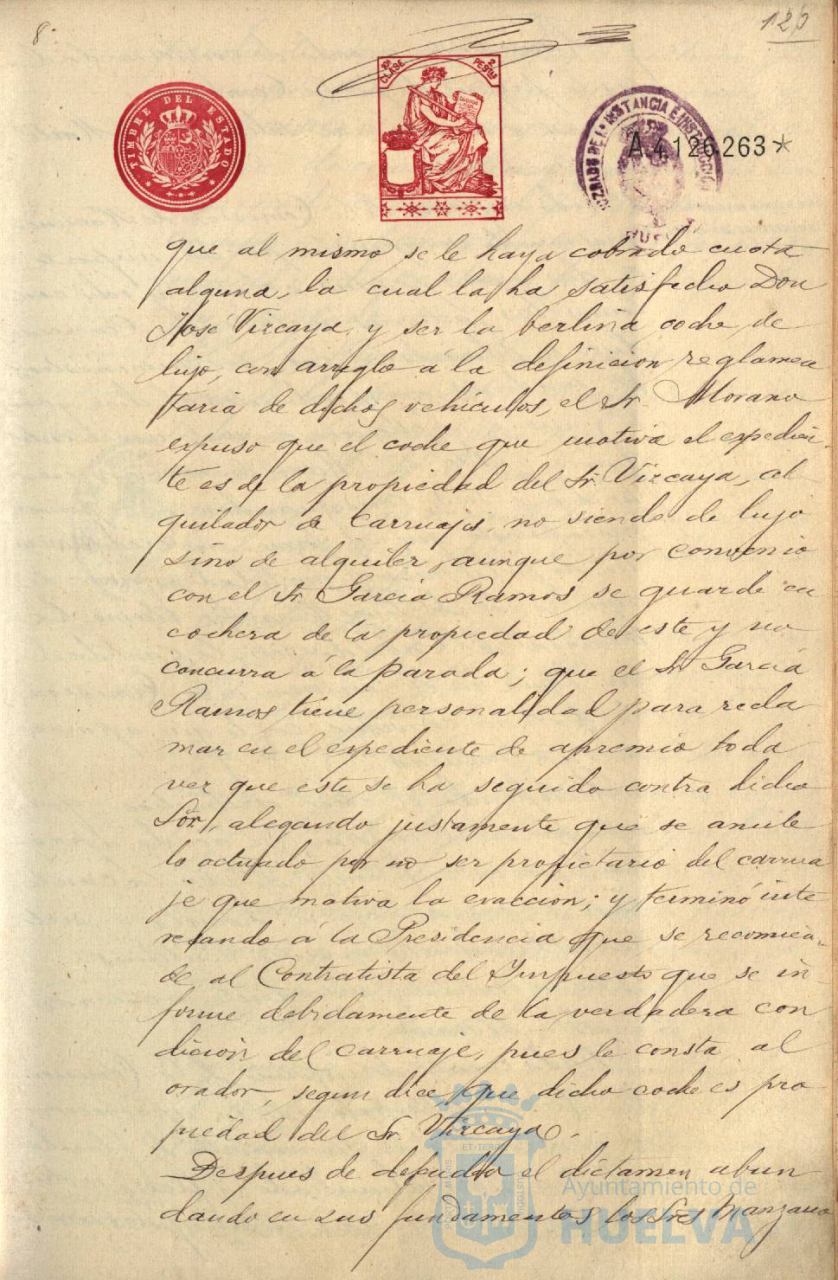 8.
120
TIMBRE DEL ESTADO
10ª CLASE 2 PESTAS
JUZGADO DE 1ª INSTANCIA E INSTRUCCION
HUELVA
A4.126.263*
que al mismo se le haya cobrado cuota
alguna, la cual la ha satisfecho Don
José Vizcaya, y ser la berlina coche de
lujo, con arreglo á la definicion reglamen
taria de dichos vehículos, el Sr. Morano
expuso que el coche que motiva el expedien-
te es de la propiedad del Sr. Vizcaya, al
quilador de carruajes, no siendo de lujo
sino de alquiler, aunque por convenio
con el Sr. Garcia Ramos se guarde en
cochera de la propiedad de este y no
concurra á la parada; que el Sr. Garcia
Ramos tiene personalidad para recla
mar en el expediente de apremio toda
vez que este se ha seguido contra dicho
Sör, alegando justamente que se anule
lo actuado por no ser propietario del carrua
je que motiva la exaccion; y terminó inte
resando á la Presidencia que se recomien-
de al Contratista del Impuesto que se in-
forme debidamente de la verdadera con
dicion del carruaje, pues le consta al
orador, segun dice, que dicho coche es pro
piedad del Sr. Vizcaya.
Despues de defender el dictamen abun
dando en sus fundamentos los Sres Manzano
Ayuntamiento de
HUELVA